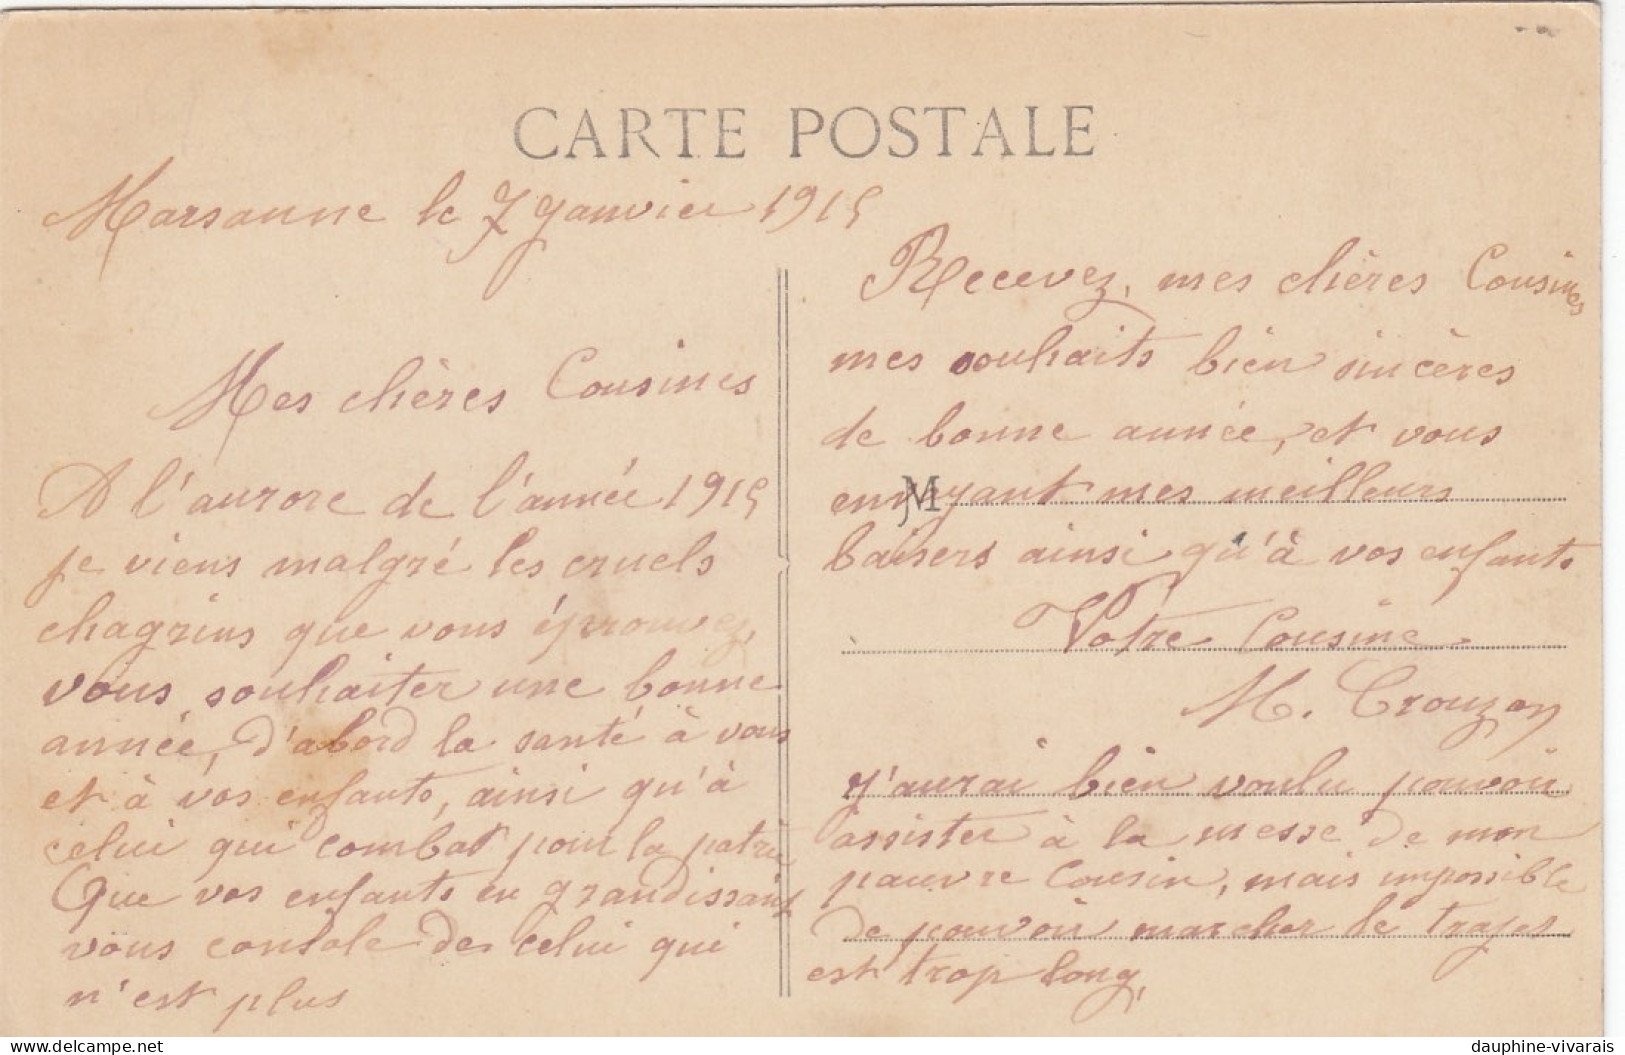 CARTE POSTALE
Marsanne le 7 Janvier 1915
Mes chères Cousines
A l'aurore de l'année 1915
je viens malgré les cruels
chagrins que vous éprouvez,
vous souhaiter une bonne
année, d'abord la santé à vous
et à vos enfants, ainsi qu'à
celui qui combat pour la patrie
Que vos enfants en grandissant
vous console de celui qui
n'est plus
Recevez, mes chères Cousines
mes souhaits bien sincères
de bonne année, et vous
M
envoyant mes meilleurs
baisers ainsi qu'à vos enfants
Votre Cousine
M. Crouzon
J'aurai bien voulu pouvoir
assister à la messe de mon
pauvre Cousin, mais impossible
de pouvoir marcher le trajet
est trop long,
dauphine-vivarais